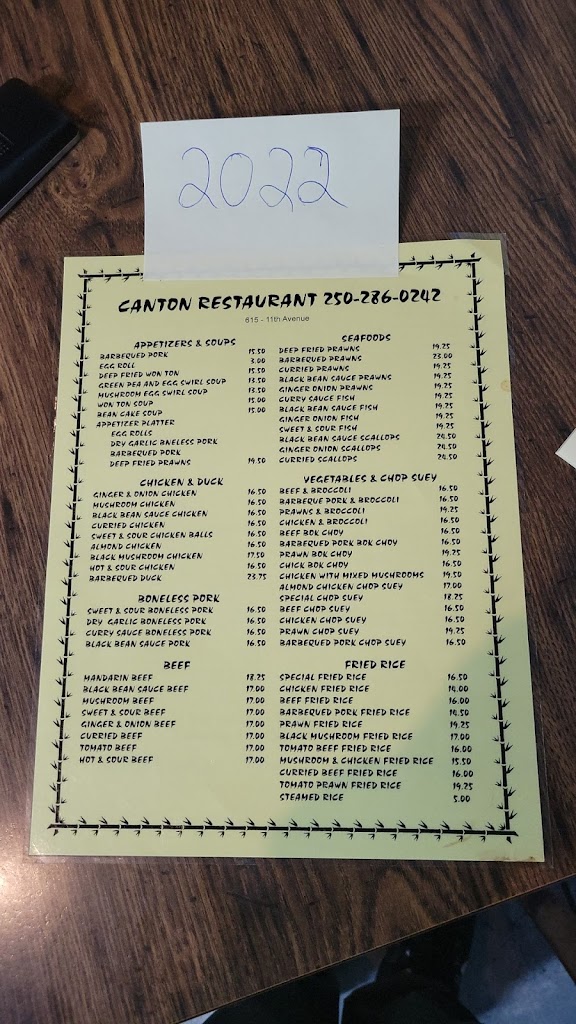 2022
CANTON RESTAURANT 250-286-0242
615 - 11th Avenue
APPETIZERS & SOUPS
BARBEQUED PORK 15.50
EGG ROLL 3.00
DEEP FRIED WON TON 15.50
GREEN PEA AND EGG SWIRL SOUP 13.50
MUSHROOM EGG SWIRL SOUP 13.50
WON TON SOUP 15.00
BEAN CAKE SOUP 15.00
APPETIZER PLATTER
EGG ROLLS
DRY GARLIC BNELESS PORK
BARBEQUED PORK
DEEP FRIED PRAWNS 19.50
CHICKEN & DUCK
GINGER & ONION CHICKEN 16.50
MUSHROOM CHICKEN 16.50
BLACK BEAN SAUCE CHICKEN 16.50
CURRIED CHICKEN 16.50
SWEET & SOUR CHICKEN BALLS 16.50
ALMOND CHICKEN 16.50
BLACK MUSHROOM CHICKEN 17.50
HOT & SOUR CHICKEN 16.50
BARBEQUED DUCK 23.75
BONELESS PORK
SWEET & SOUR BONELESS PORK 16.50
DRY GARLIC BONELESS PORK 16.50
CURRY SAUCE BONELESS PORK 16.50
BLACK BEAN SAUCE PORK 16.50
BEEF
MANDARIN BEEF 18.25
BLACK BEAN SAUCE BEEF 17.00
MUSHROOM BEEF 17.00
SWEET & SOUR BEEF 17.00
GINGER & ONION BEEF 17.00
CURRIED BEEF 17.00
TOMATO BEEF 17.00
HOT & SOUR BEEF 17.00
SEAFOODS
DEEP FRIED PRAWNS 19.25
BARBEQUED PRAWNS 23.00
CURRIED PRAWNS 19.25
BLACK BEAN SAUCE PRAWNS 19.25
GINGER ONION PRAWNS 19.25
CURRY SAUCE FISH 19.25
BLACK BEAN SAUCE FISH 19.25
GINGER ONION FISH 19.25
SWEET & SOUR FISH 19.25
BLACK BEAN SAUCE SCALLOPS 24.50
GINGER ONION SCALLOPS 24.50
CURRIED SCALLOPS 24.50
VEGETABLES & CHOP SUEY
BEEF & BROCCOLI 16.50
BARBEQUE PORK & BROCCOLI 16.50
PRAWNS & BROCCOLI 19.25
CHICKEN & BROCCOLI 16.50
BEEF BOK CHOY 16.50
BARBEQUED PORK BOK CHOY 16.50
PRAWN BOK CHOY 19.25
CHICK BOK CHOY 16.50
CHICKEN WITH MIXED MUSHROOMS 19.50
ALMOND CHICKEN CHOP SUEY 17.00
SPECIAL CHOP SUEY 18.25
BEEF CHOP SUEY 16.50
CHICKEN CHOP SUEY 16.50
PRAWN CHOP SUEY 19.25
BARBEQUED PORK CHOP SUEY 16.50
FRIED RICE
SPECIAL FRIED RICE 16.50
CHICKEN FRIED RICE 14.00
BEEF FRIED RICE 16.00
BARBEQUED PORK FRIED RICE 14.50
PRAWN FRIED RICE 19.25
BLACK MUSHROOM FRIED RICE 17.00
TOMATO BEEF FRIED RICE 16.00
MUSHROOM & CHICKEN FRIED RICE 15.50
CURRIED BEEF FRIED RICE 16.00
TOMATO PRAWN FRIED RICE 19.25
STEAMED RICE 5.00